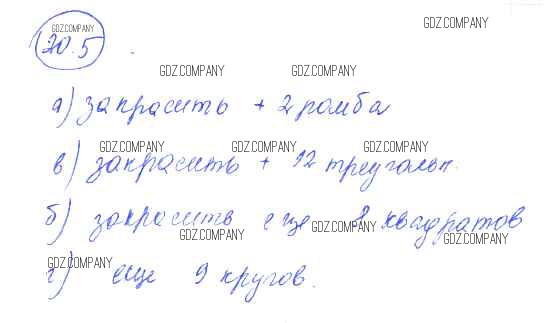 GDZ.COMPANY
20.5
GDZ.COMPANY
GDZ.COMPANY GDZ.COMPANY
а) запрасить + 2 ромба
GDZ.COMPANY GDZ.COMPANY GDZ.COMPANY
в) закрасить + 12 треугольн.
б) закрасить еще 8 квадратов
GDZ.COMPANY GDZ.COMPANY GDZ.COMPANY
GDZ.COMPANY
г) еще 9 кругов.